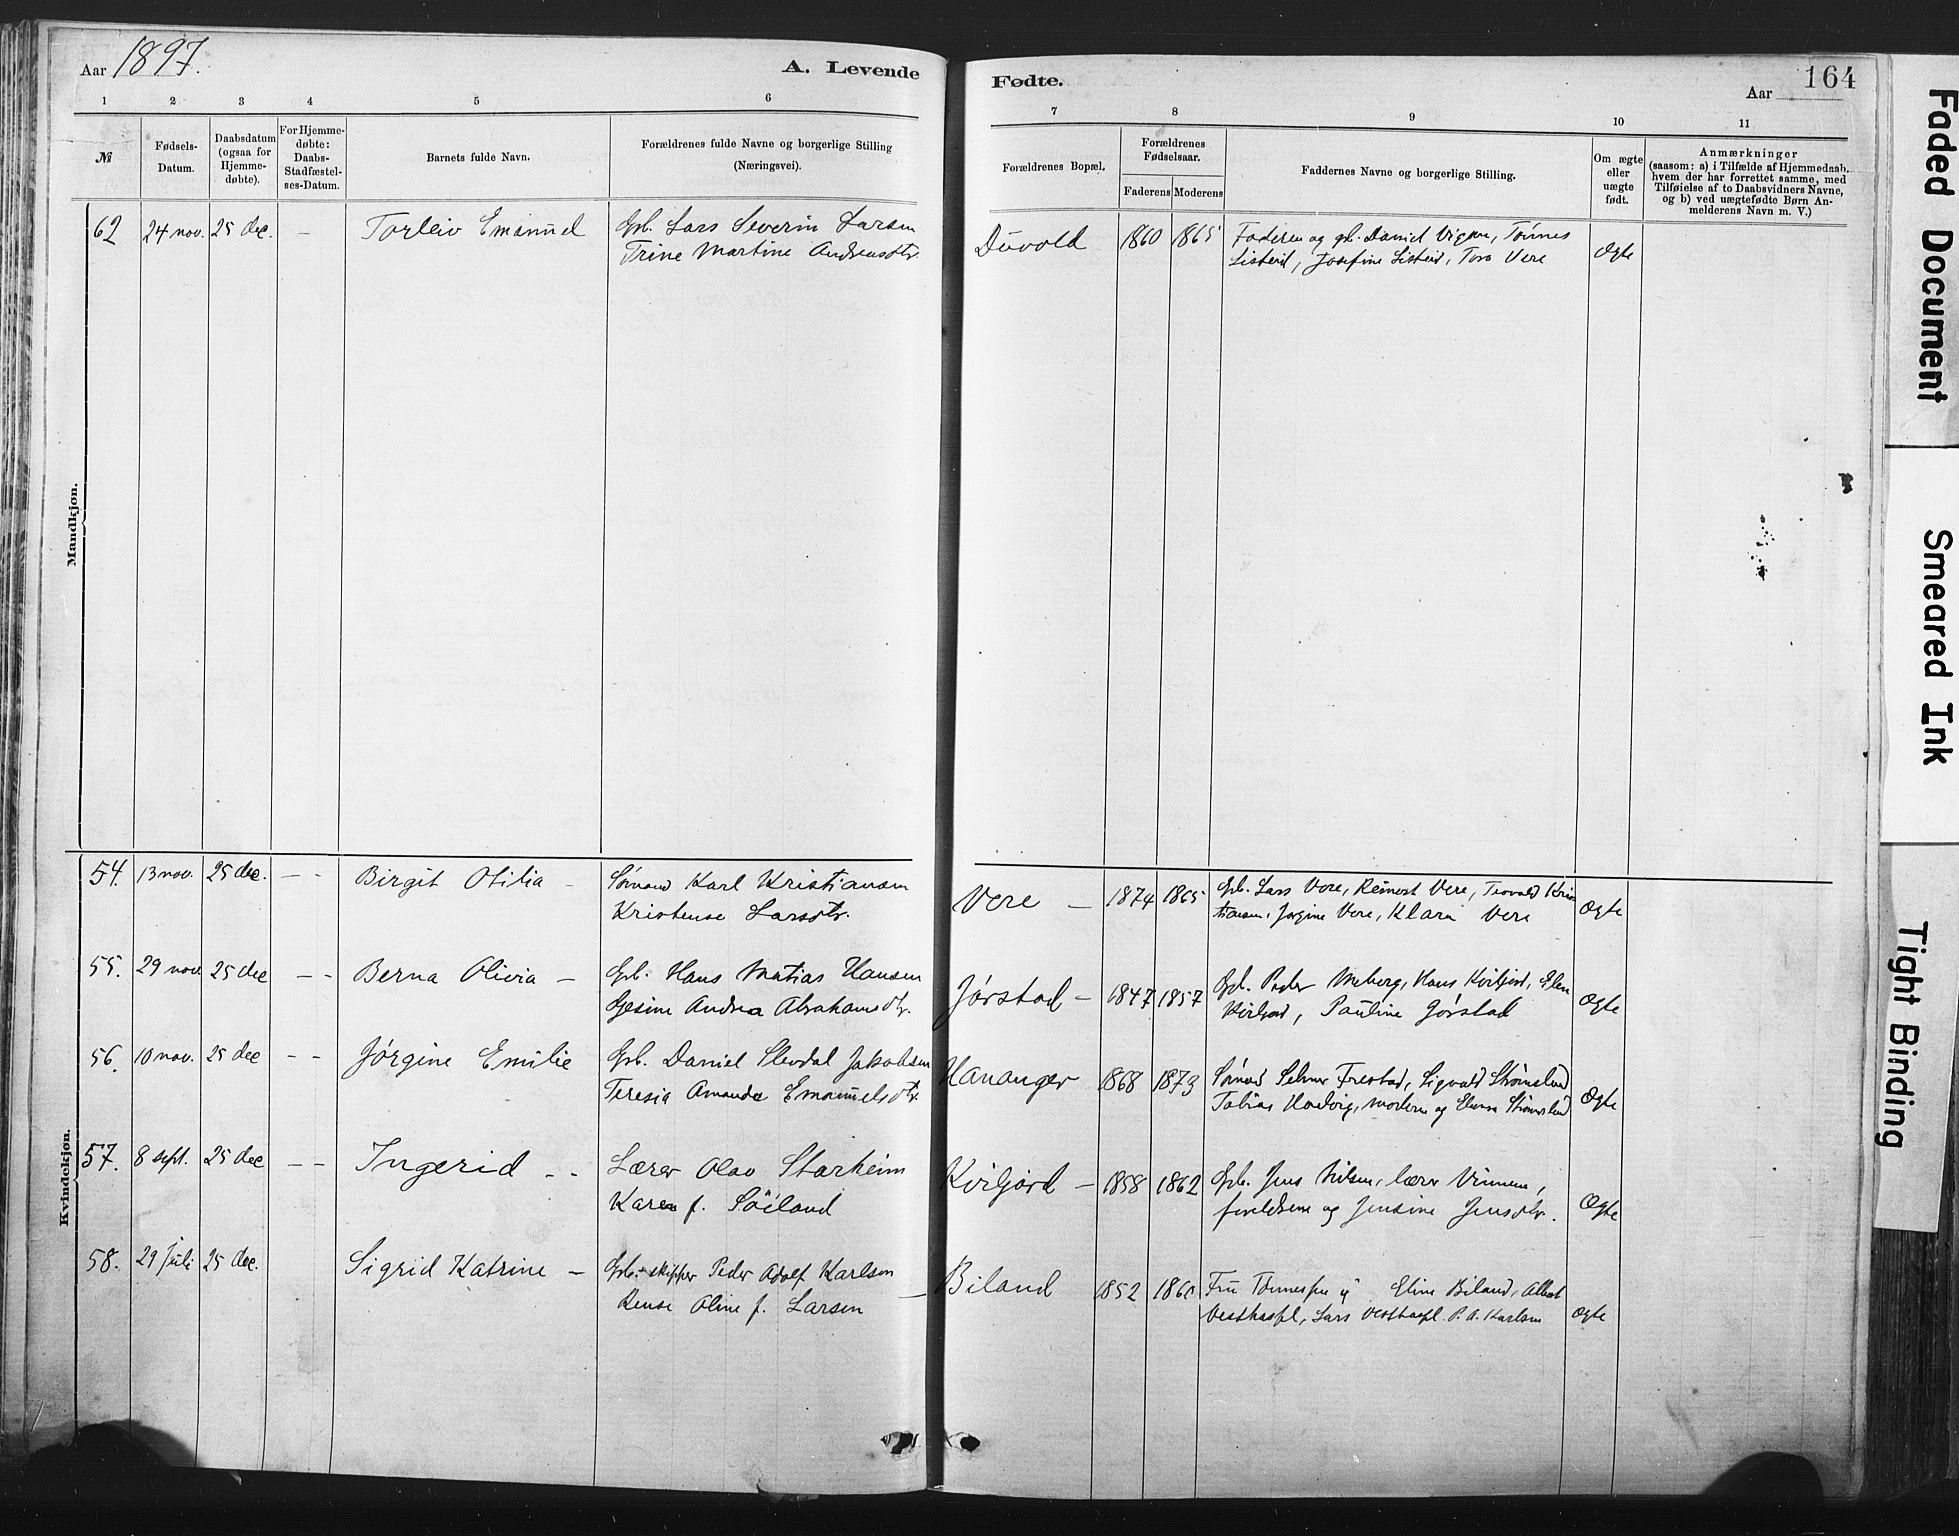 Aar 1897.
A. Levende
1 2 3 4 5 6
№
Fødsels-
Datum.
Daabsdatum
(ogsaa for
Hjemme-
døbte).
For Hjemme-
døbte:
Daabs-
Stadfæstel-
ses-Datum.
Barnets fulde Navn.
Forældrenes fulde Navne og borgerlige Stilling
(Næringsvei).
Mandkjøn.
62 24 nov. 25 dec. - Torleiv Emanuel Gbr. Lars Severin Larsen
Trine Martine Andreasdtr.
Kvindekjøn.
54. 13 nov. 25 dec. - - Birgit Otilia - Sømand Karl Kristiansen
Kristense Larsdtr.
55. 29 nov. 25 dec - - Berna Olivia - Gbr. Hans Matias Hansen
Gesine Andrea Abrahamsdtr.
56. 10 nov. 25 dec - - Jörgine Emilie Gbr. Daniel Slevdal Jakobsen
Teresia Amanda Emanuelsdtr.
57. 8 sept. 25 dec - - Ingerid - - Lærer Olav Starheim
Karen f. Söiland
58. 29 juli 25 dec. Sigrid Katrine - Gbr. skipper Peder Adolf Karlsen
Rense Oline f. Larsen -
Fødte.
Aar 164
7 8 9 10 11
Forældrenes Bopæl.
Forældrenes
Fødselsaar.
Faderens Moderens
Faddernes Navne og borgerlige Stilling.
Om ægte
eller
uægte
født.
Anmærkninger
(saasom: a) i Tilfælde af Hjemmedaab,
hvem der har forrettet samme, med
Tilføielse af to Daabsvidners Navne,
og b) ved uægtefødte Børn An-
melderens Navn m. V.)
Duvold 1860 1865 Faderen og gb. Daniel Vigan, Tönnes
Listeid, Josefine Listeid, Tora Vere Ægte
Vere - 1874 1865 Gbr. Lars Vere, Reinert Vere, Teovald Kris
tiansen, Jørgine Vere, Klara Vere Ægte
Jörstad - 1847 1857 Gbr. Peder Meberg, Hans Kviljord, Elen
Kviljord, Pauline Görstad Ægte
Hananger 1868 1873 Sømand Selmer Frestad, Sigvald Strömsland
Tobias Hadvig, moderen og Strömsland Ægte
Kviljord - 1858 1862 Gbr. Jens Nilsen, lærer Vinnem,
foreldrene og Jensine Jensdtr. Ægte
Biland 1852 1860 Fru Eline Biland, Albert
Vesthassel, Lars Vesthassel. P. A. Karlsen Ægte
Faded Document
Smeared Ink
Tight Binding